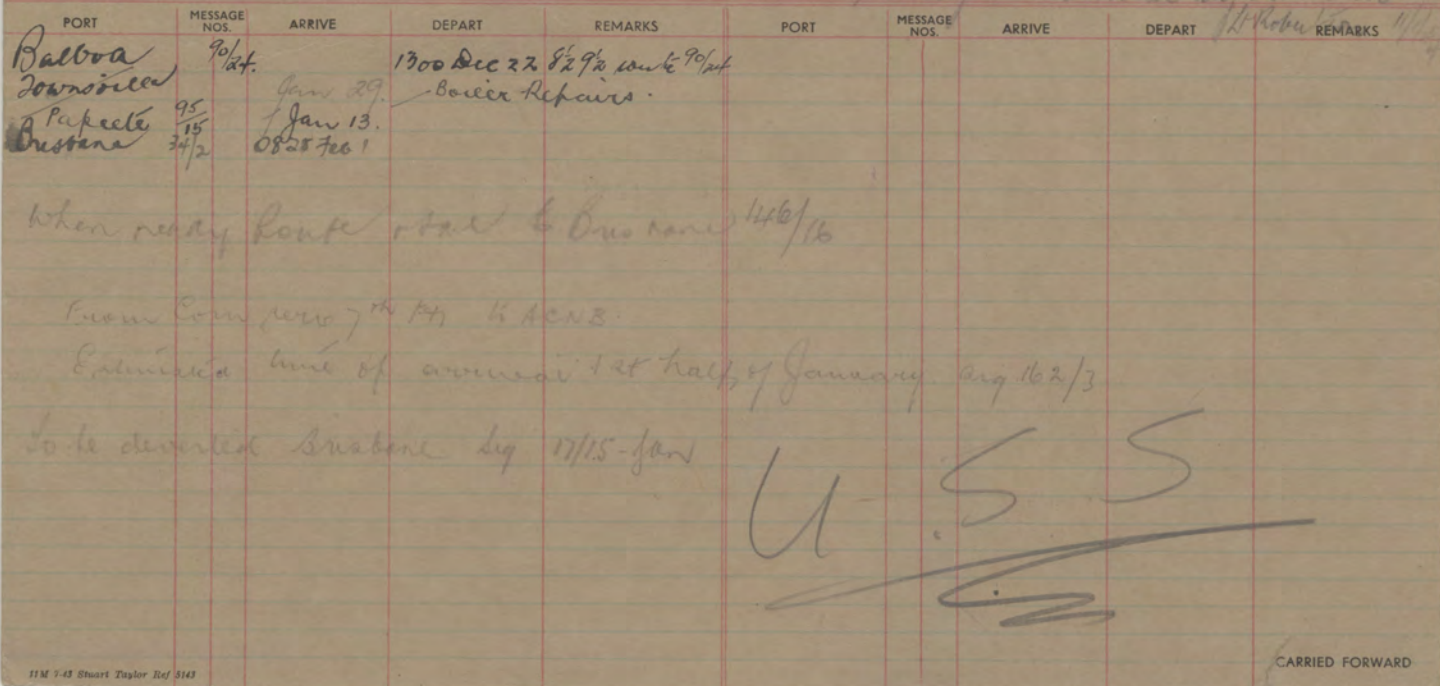 PORT MESSAGE NOS. ARRIVE DEPART REMARKS PORT MESSAGE NOS. ARRIVE DEPART REMARKS
Balboa 90/24. 1300 Dec 22 8½ 9½ route 90/24
Townsville Jan 29. Boiler Repairs.
Papeete 95/15 Jan 13.
Brisbane 34/2 0825 Feb 1
When ready Route to Brisbane 146/16
From Com 7th to ACNB
Estimated time of arrival 1st half of January sig 162/3
To be diverted Brisbane Sig 17/15-Jan
U.S.S
11M 7-43 Stuart Taylor Ref 5143
CARRIED FORWARD